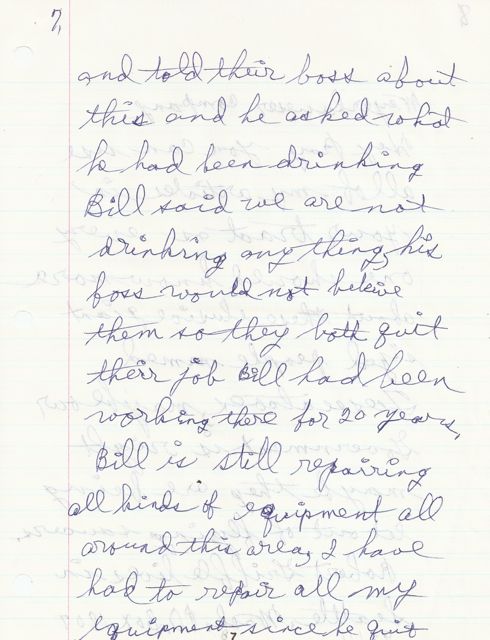 7,
and told their boss about
this and he asked what
he had been drinking
Bill said we are not
drinking any thing, his
boss would not belive
them so they both quit
their job Bill had been
working there for 20 years,
Bill is still repairing
all kinds of equipment all
around this area, I have
had to repair all my
equipment since he quit
7